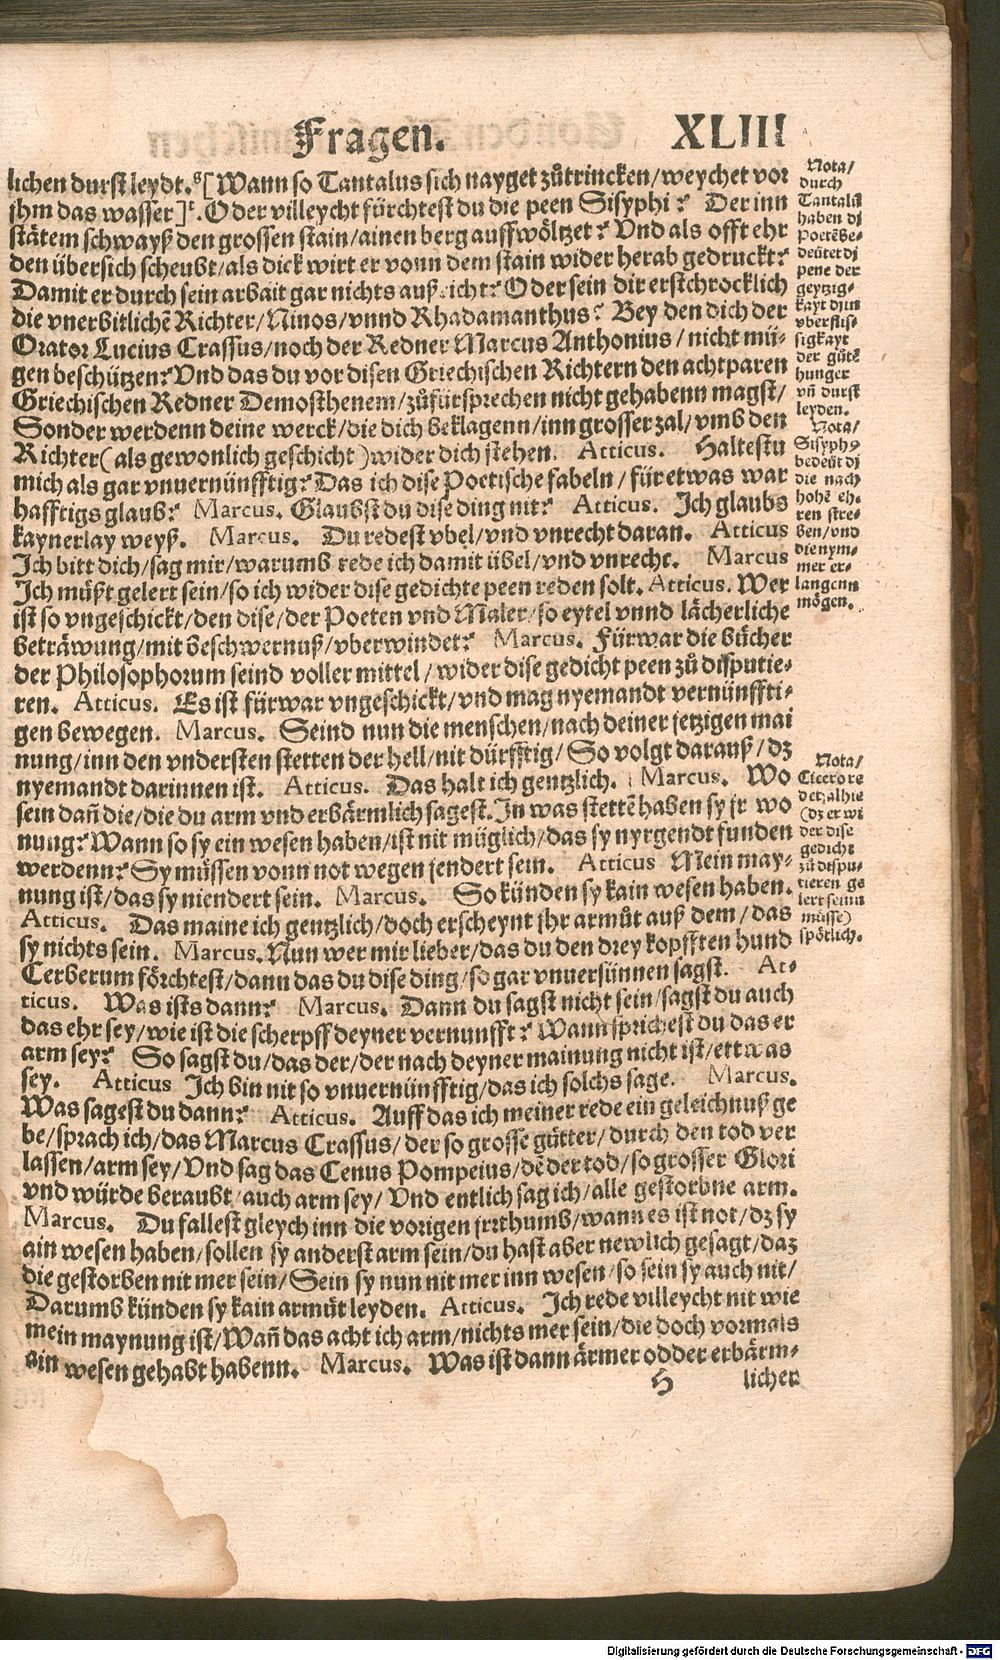 Fragen. XLIII
lichen durst leydt.ᵍ[Wann so Tantalus sich nayget zůtrincken/weychet vor
jhm das wasser]ᵗ. Oder villeycht fürchtest du die peen Sisyphi? Der inn
stätem schwayß den grossen stain/ainen berg auffwöltzet? Vnd als offt ehr
den übersich scheubt/als dick wirt er vonn dem stain wider herab gedruckt?
Damit er durch sein arbait gar nichts außricht? Oder sein dir erstchrocklich
die vnerbitlichẽ Richter/Ninos/vnnd Rhadamanthus? Bey den dich der
Orator Lucius Crassus/noch der Redner Marcus Anthonius/nicht mü⸗
gen beschützen? Vnd das du vor disen Griechischen Richtern den achtparen
Griechischen Redner Demosthenem/zůfürsprechen nicht gehabenn magst/
Sonder werdenn deine werck/die dich beklagenn/inn grosser zal/vmb den
Richter(als gewonlich geschicht)wider dich stehen. Atticus. Haltestu
mich als gar vnuernünfftig? Das ich dise Poetische fabeln/für etwas war
hafftigs glaub? Marcus. Glaubst du dise ding nit? Atticus. Ich glaubs
kaynerlay weyß. Marcus. Du redest vbel/vnd vnrecht daran. Atticus
Ich bitt dich/sag mir/warumb rede ich damit übel/vnd vnrecht. Marcus
Ich müßt gelert sein/so ich wider dise gedichte peen reden solt. Atticus. Wer
ist so vngeschickt/den dise/der Poeten vnd Maler/so eytel vnnd lächerliche
beträwung/mit beschwernuß/vberwindet? Marcus. Fürwar die bücher
der Philosophorum seind voller mittel/wider dise gedicht peen zů disputie⸗
ren. Atticus. Es ist fürwar vngeschickt/vnd mag nyemandt vernünffti⸗
gen bewegen. Marcus. Seind nun die menschen/nach deiner jetzigen mai
nung/inn den vndersten stetten der hell/nit dürfftig/So volgt darauß/dz
nyemandt darinnen ist. Atticus. Das halt ich gentzlich. Marcus. Wo
sein dañ die/die du arm vnd erbärmlich sagest. In was stettẽ haben sy jr wo
nung? Wann so sy ein wesen haben/ist nit müglich/das sy nyrgendt funden
werdenn? Sy müssen vonn not wegen jendert sein. Atticus Mein may⸗
nung ist/das sy niendert sein. Marcus. So künden sy kain wesen haben.
Atticus. Das maine ich gentzlich/doch erscheynt jhr armůt auß dem/das
sy nichts sein. Marcus. Nun wer mir lieber/das du den drey kopfften hund
Cerberum förchtest/dann das du dise ding/so gar vnuersünnen sagst. At⸗
ticus. Was ists dann? Marcus. Dann du sagst nicht sein/sagst du auch
das ehr sey/wie ist die scherpff deyner vernunfft? Wann sprichest du das er
arm sey? So sagst du/das der/der nach deyner mainung nicht ist/ettwas
sey. Atticus Ich bin nit so vnuernünfftig/das ich solchs sage. Marcus.
Was sagest du dann? Atticus. Auff das ich meiner rede ein geleichnuß ge
be/sprach ich/das Marcus Crassus/der so grosse gütter/durch den tod ver
lassen/arm sey/Vnd sag das Cenus Pompeius/dẽ der tod/so grosser Glori
vnd würde beraubt/auch arm sey/Vnd entlich sag ich/alle gestorbne arm.
Marcus. Du fallest gleych inn die vorigen jrrthumb/wann es ist not/dz sy
ain wesen haben/sollen sy anderst arm sein/du hast aber newlich gesagt/daz
die gestorben nit mer sein/Sein sy nun nit mer inn wesen/so sein sy auch nit/
Darumb künden sy kain armůt leyden. Atticus. Ich rede villeycht nit wie
mein maynung ist/Wañ das acht ich arm/nichts mer sein/die doch vormals
ain wesen gehabt habenn. Marcus. Was ist dann ärmer odder erbärm⸗
H licher
Nota/
durch
Tantalũ
haben di
Poetẽ be⸗
deütet di
pene der
geytzig⸗
kayt dz in
vberflis⸗
sigkayt
der gütẽ
hunger
vñ durst
leyden.
Nota/
Sisyphꝰ
bedeüt di
die nach
hohẽ eh⸗
ren stre⸗
ben/vnd
die nym⸗
mer er⸗
langenn
mögen.
Nota/
Cicero re
det alhie
(dz er wi
der dise
gedicht
zů dispu⸗
tieren ge
lert seinn
müsse)
spötlich.
Digitalisierung gefördert durch die Deutsche Forschungsgemeinschaft - DFG